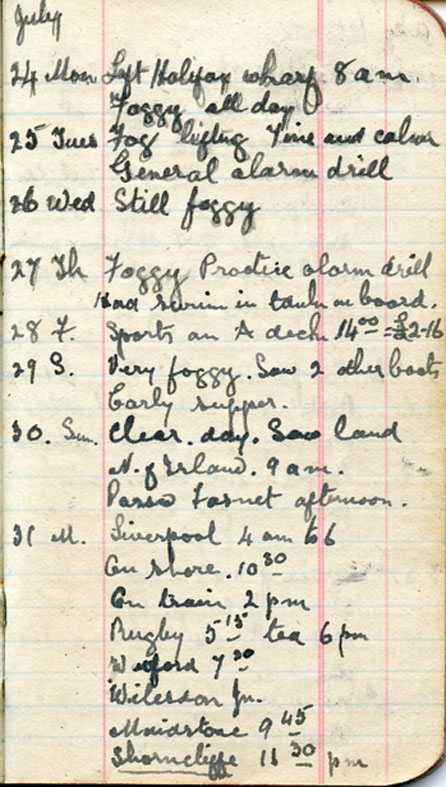 July
24 Mon Left Halifax wharf. 8 am.
Foggy all day
25 Tues Fog lifting Fine and calm
General alarm drill
26 Wed Still foggy
27 Th Foggy Practice alarm drill
Had swim in tank on board.
28 F. Sports on A deck. 14 00 = £2-16
29 S. Very foggy. Saw 2 other boats
Early supper.
30. Sun. Clear. day. Saw land
N. of Irland. 9 am.
Passed Fasnet afternoon.
31 M. Liverpool 4 am to 6
On shore. 10 30
On train 2 pm
Rugby 5 15 tea 6 pm
7 30
Wilesdon Jn.
Maidstone 9 45
Shorncliffe 11 30 pm